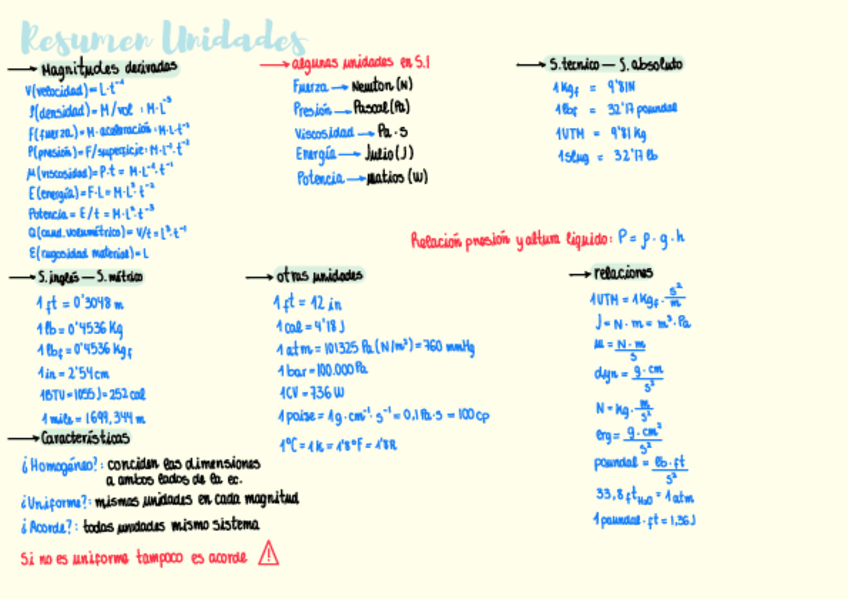 Resumen Unidades
→ Magnitudes derivadas
V(velocidad)= L·t⁻¹
ρ(densidad)= M/vol : M·L⁻³
F(fuerza)= M·aceleración : M·L·t⁻²
P(presión)= F/superficie: M·L⁻¹·t⁻²
μ(viscosidad)= P·t = M·L⁻¹·t⁻¹
E(energía)= F·L = M·L²·t⁻²
Potencia = E/t = M·L²·t⁻³
Q(caud. volumétrico)= V/t = L³·t⁻¹
ε(rugosidad material)= L
→ algunas unidades en S.I
Fuerza → Newton (N)
Presión → Pascal (Pa)
Viscosidad → Pa·s
Energía → Julio (J)
Potencia → Watios (W)
→ S.tecnico — S. absoluto
1 Kgf = 9'81N
1 lbf = 32'17 poundal
1UTM = 9'81 Kg
1 slug = 32'17 lb
Relación presión y altura líquido: P = ρ·g·h
→ S. inglés — S. métrico
1 ft = 0'3048 m
1 lb = 0'4536 Kg
1 lbf = 0'4536 Kgf
1 in = 2'54 cm
1BTU = 1055 J = 252 cal
1 mile = 1699,344 m
→ otras unidades
1 ft = 12 in
1 cal = 4'18 J
1 atm = 101325 Pa (N/m²) = 760 mmHg
1 bar = 100.000 Pa
1CV = 736 W
1 poise = 1g·cm⁻¹·s⁻¹ = 0,1 Pa·s = 100 cp
1°C = 1K = 1'8°F = 1'8R
→ relaciones
1UTM = 1Kgf · s²/m
J = N·m = m³·Pa
W = N·m/s
dyn = g·cm/s²
N = Kg · m/s²
erg = g·cm²/s²
poundal = lb·ft/s²
33,8 ft H₂O = 1 atm
1 poundal·ft = 1,36J
→ Características
¿Homogéneo?: conciden las dimensiones
a ambos lados de la ec.
¿Uniforme?: mismas unidades en cada magnitud
¿Acorde?: todas unidades mismo sistema
Si no es uniforme tampoco es acorde ⚠